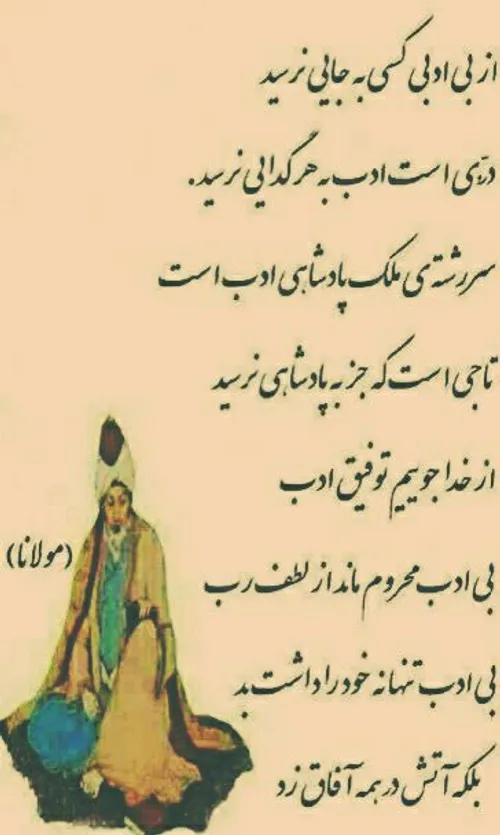 از بی ادبی کسی به جایی نرسید
درّی است ادب به هر گدایی نرسید.
سررشته ی ملک پادشاهی ادب است
تاجی است که جز به پادشاهی نرسید
از خدا جوییم توفیق ادب
(مولانا)
بی ادب محروم ماند از لطف رب
بی ادب تنها نه خود را داشت بد
بلکه آتش در همه آفاق زد